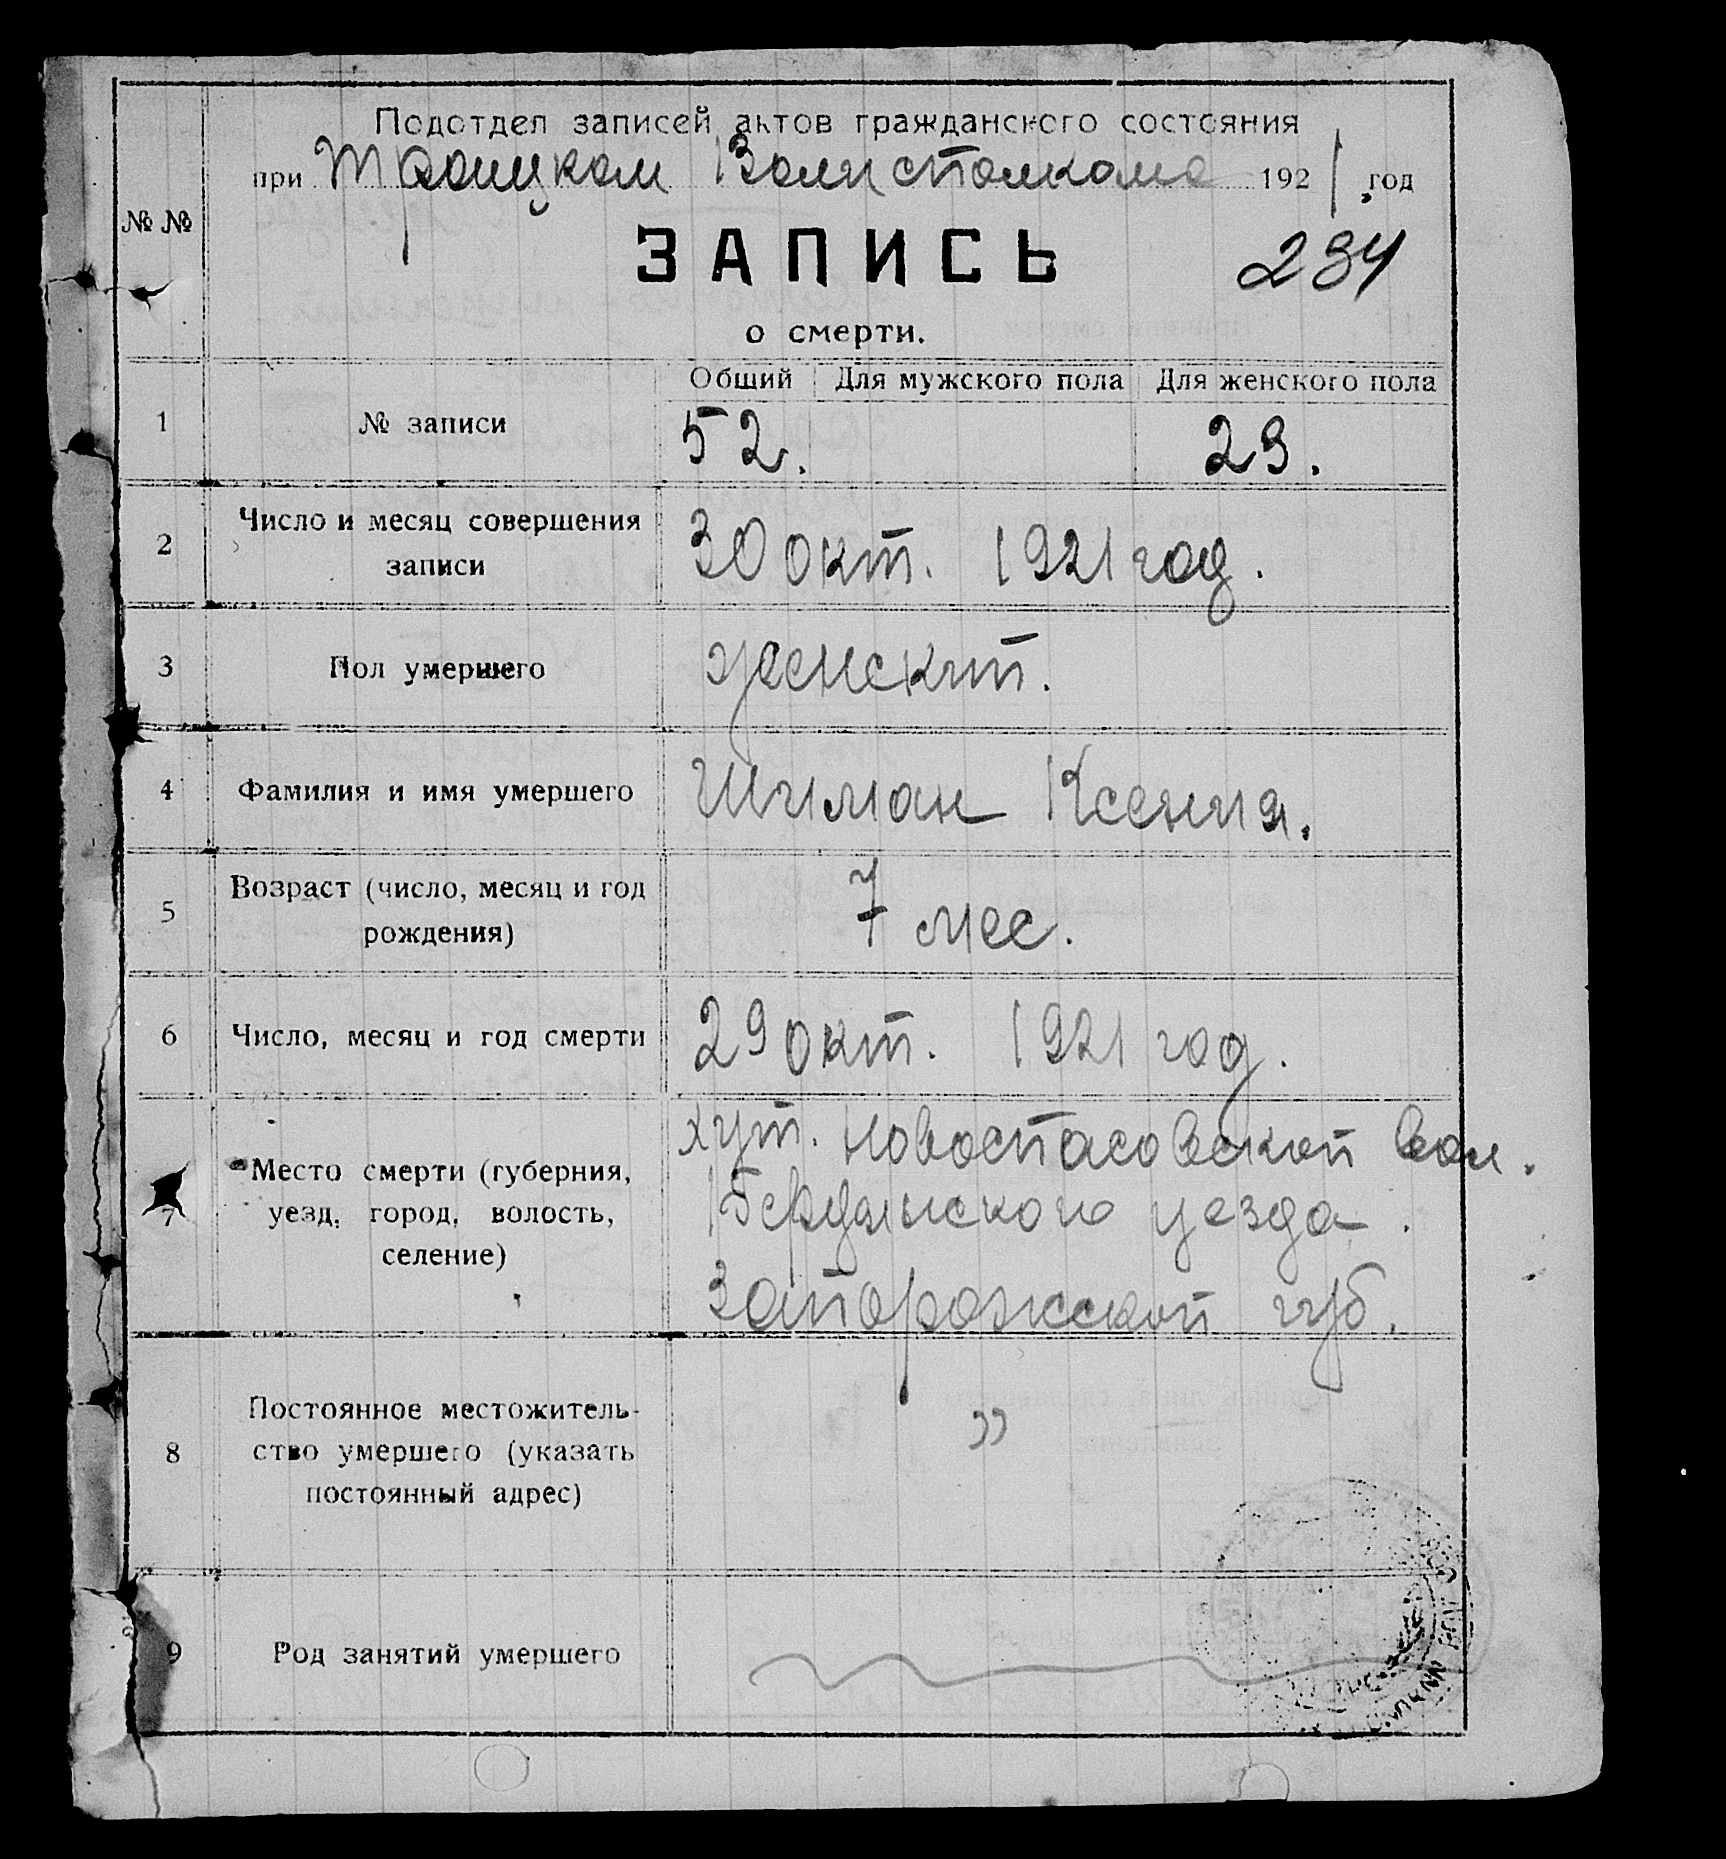 Подотдел записей актов гражданского состояния
при Троицком Волисполкоме 1921 год
№ №
ЗАПИСЬ 234
о смерти.
Общий Для мужского пола Для женского пола
1 № записи 52. 23.
2 Число и месяц совершения
записи 30 окт. 1921 год.
3 Пол умершего женский.
4 Фамилия и имя умершего Шиман Ксения.
5 Возраст (число, месяц и год
рождения) 7 мес.
6 Число, месяц и год смерти 29 окт. 1921 год.
7 Место смерти (губерния,
уезд, город, волость,
селение)
хут. Новоспасовской вол.
Бердянского уезда.
Запорожской губ.
8 Постоянное местожитель-
ство умершего (указать
постоянный адрес)
"
9 Род занятий умершего